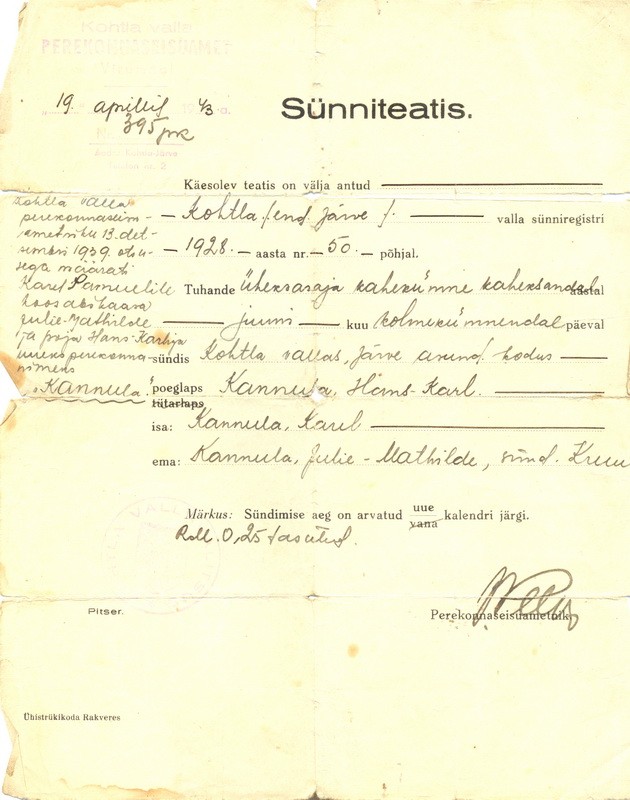 Kohtla valla
PEREKONNASEISUAMET
19. aprillil 43
395
Sünniteatis.
Käesolev teatis on välja antud
Kohtla /end. Järve/. valla sünniregistri
1928. aasta nr. 50. põhjal.
Tuhande üheksasaja kahekümne kaheksandal aastal
juuni kuu kolmekümnendal päeval
sündis Kohtla vallas, Järve asund. kodus
poeglaps Kannula, Hans-Karl.
tütarlaps
isa: Kannula, Karel
ema: Kannula, Julie-Mathilde, sünd. Kruu
Kohtla valla
perekonnaseisu-
ametniku 13. det-
sembri 1939. otsu-
sega määrati
Karel
koos abikaasa
Julie-Mathilde
ja poja Hans-Karliga
uueks perekonna-
nimeks
"Kannula."
Märkus: Sündimise aeg on arvatud uue
vana kalendri järgi.
Rmk. 0,25 tasutud.
Pitser.
Perekonnaseisuametnik
Ühistrükikoda Rakveres